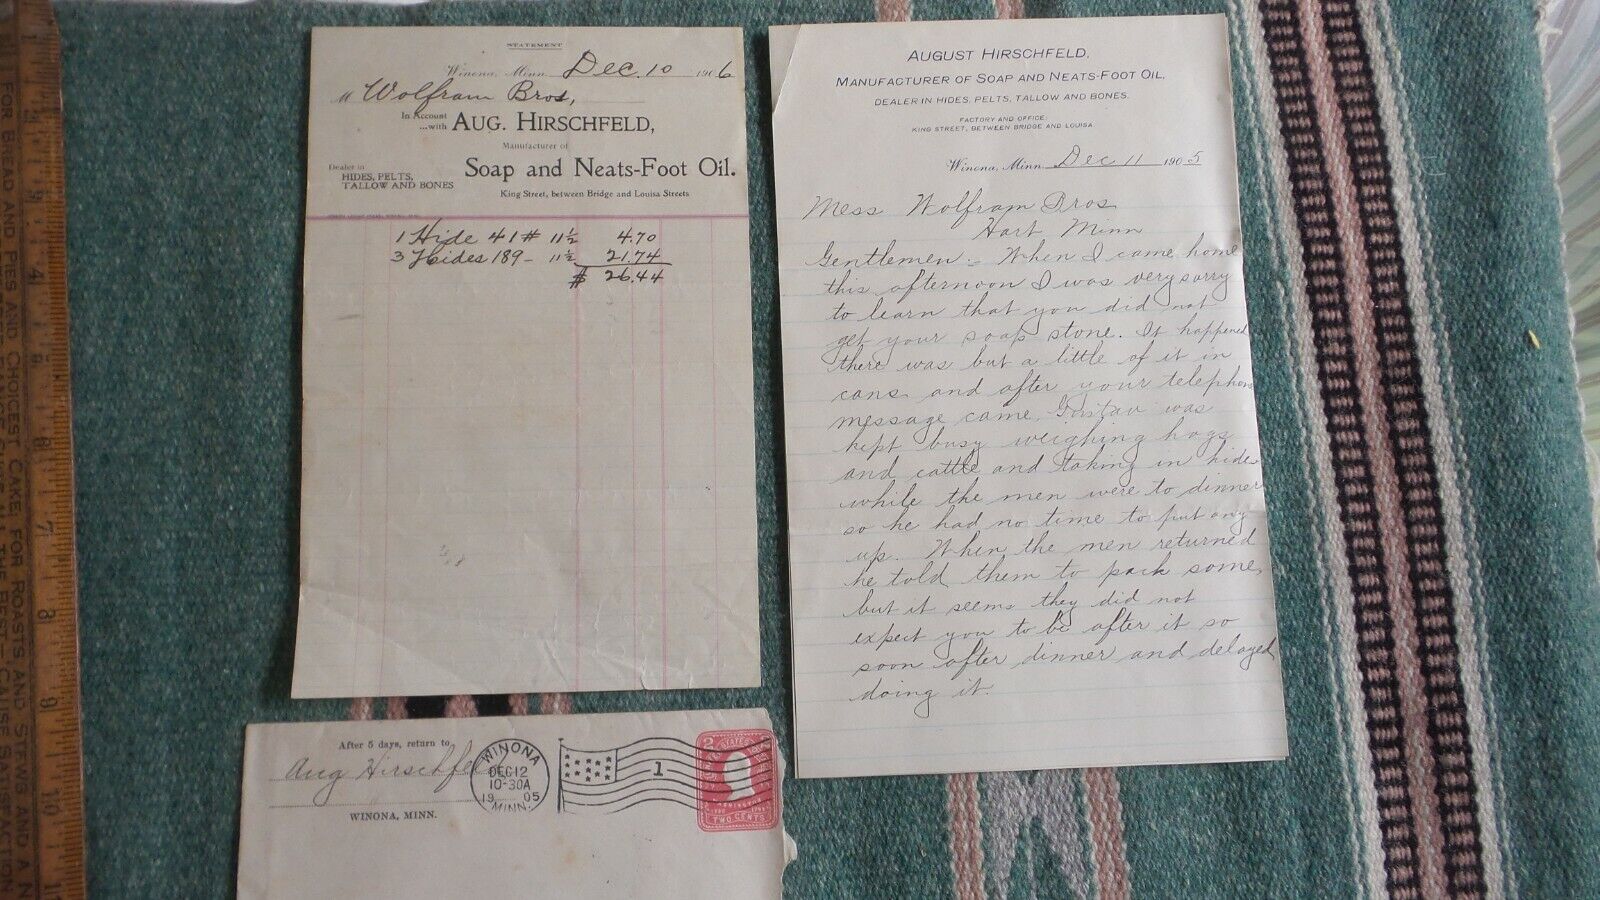 STATEMENT
Winona, Minn. Dec. 10 1906
M Wolfram Bros,
In Account
...with AUG. HIRSCHFELD,
Manufacturer of
Dealer in
HIDES, PELTS,
TALLOW AND BONES
Soap and Neats-Foot Oil.
King Street, between Bridge and Louisa Streets
1 Hide 41# 11½ 4.70
3 Hides 189- 11½ 21.74
$ 26.44
AUGUST HIRSCHFELD,
MANUFACTURER OF SOAP AND NEATS-FOOT OIL,
DEALER IN HIDES, PELTS, TALLOW AND BONES.
FACTORY AND OFFICE:
KING STREET, BETWEEN BRIDGE AND LOUISA
Winona, Minn. Dec 11 1905
Mess Wolfram Bros
Hart Minn
Gentlemen:- When I came home
this afternoon I was very sorry
to learn that you did not
get your soap stone. It happened
there was but a little of it in
cans and after your telephone
message came, Gustav was
kept busy weighing hogs
and cattle and taking in hides
while the men were to dinner
so he had no time to put any
up. When the men returned
he told them to pack some,
but it seems they did not
expect you to be after it so
soon after dinner and delayed
doing it.
After 5 days, return to
Aug Hirschfeld
WINONA, MINN.
WINONA
DEC 12
10-30A
1905
MINN.
1
TWO CENTS
FOR BREAD AND PIES AND CHOICEST CAKE, FOR ROASTS AND STEWS AND
4
5
6
7
8
9
10